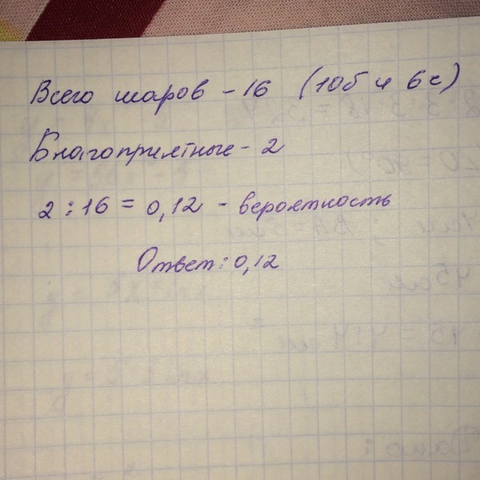 Всего шаров - 16 (10б и 6с)
Благоприятные - 2
2 : 16 = 0,12 - вероятность
Ответ: 0,12